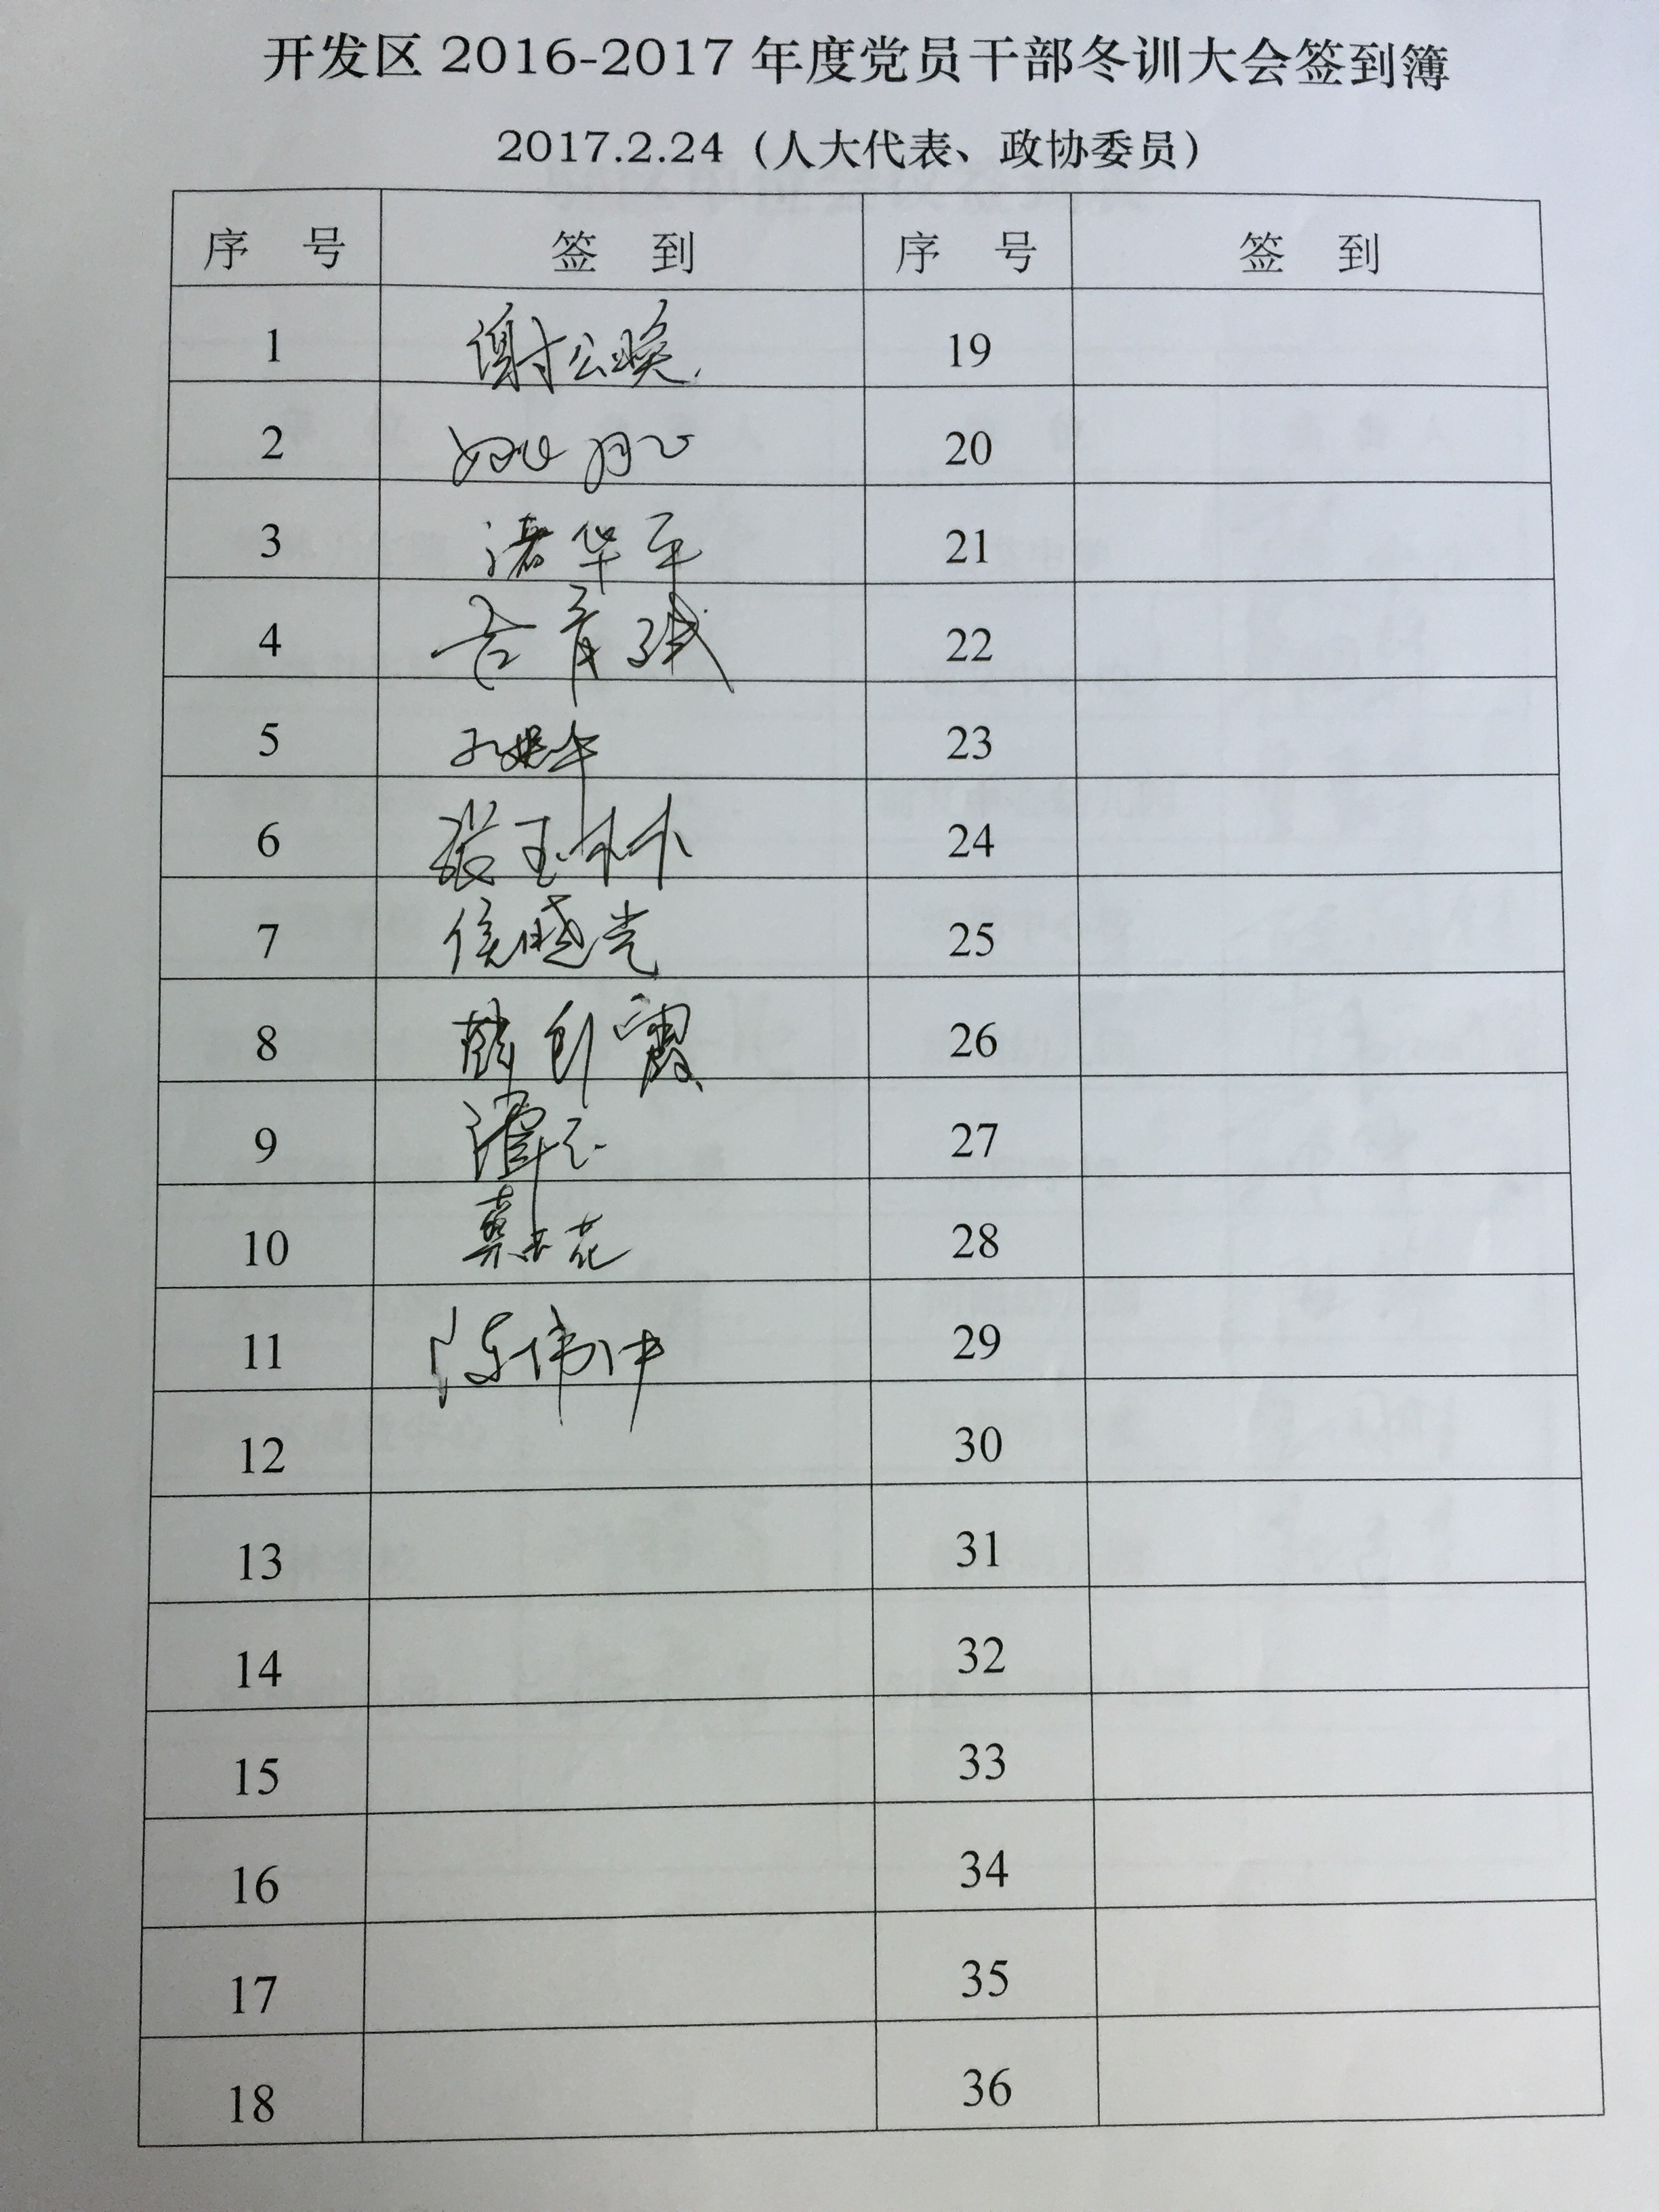 开发区 2016-2017 年度党员干部冬训大会签到簿
2017.2.24（人大代表、政协委员）
序 号 签 到 序 号 签 到
1 谢公晚 19
2 20
3 渚华平 21
4 22
5 23
6 张玉林 24
7 侯晓光 25
8 26
9 27
10 花 28
11 陈伟冲 29
12 30
13 31
14 32
15 33
16 34
17 35
18 36